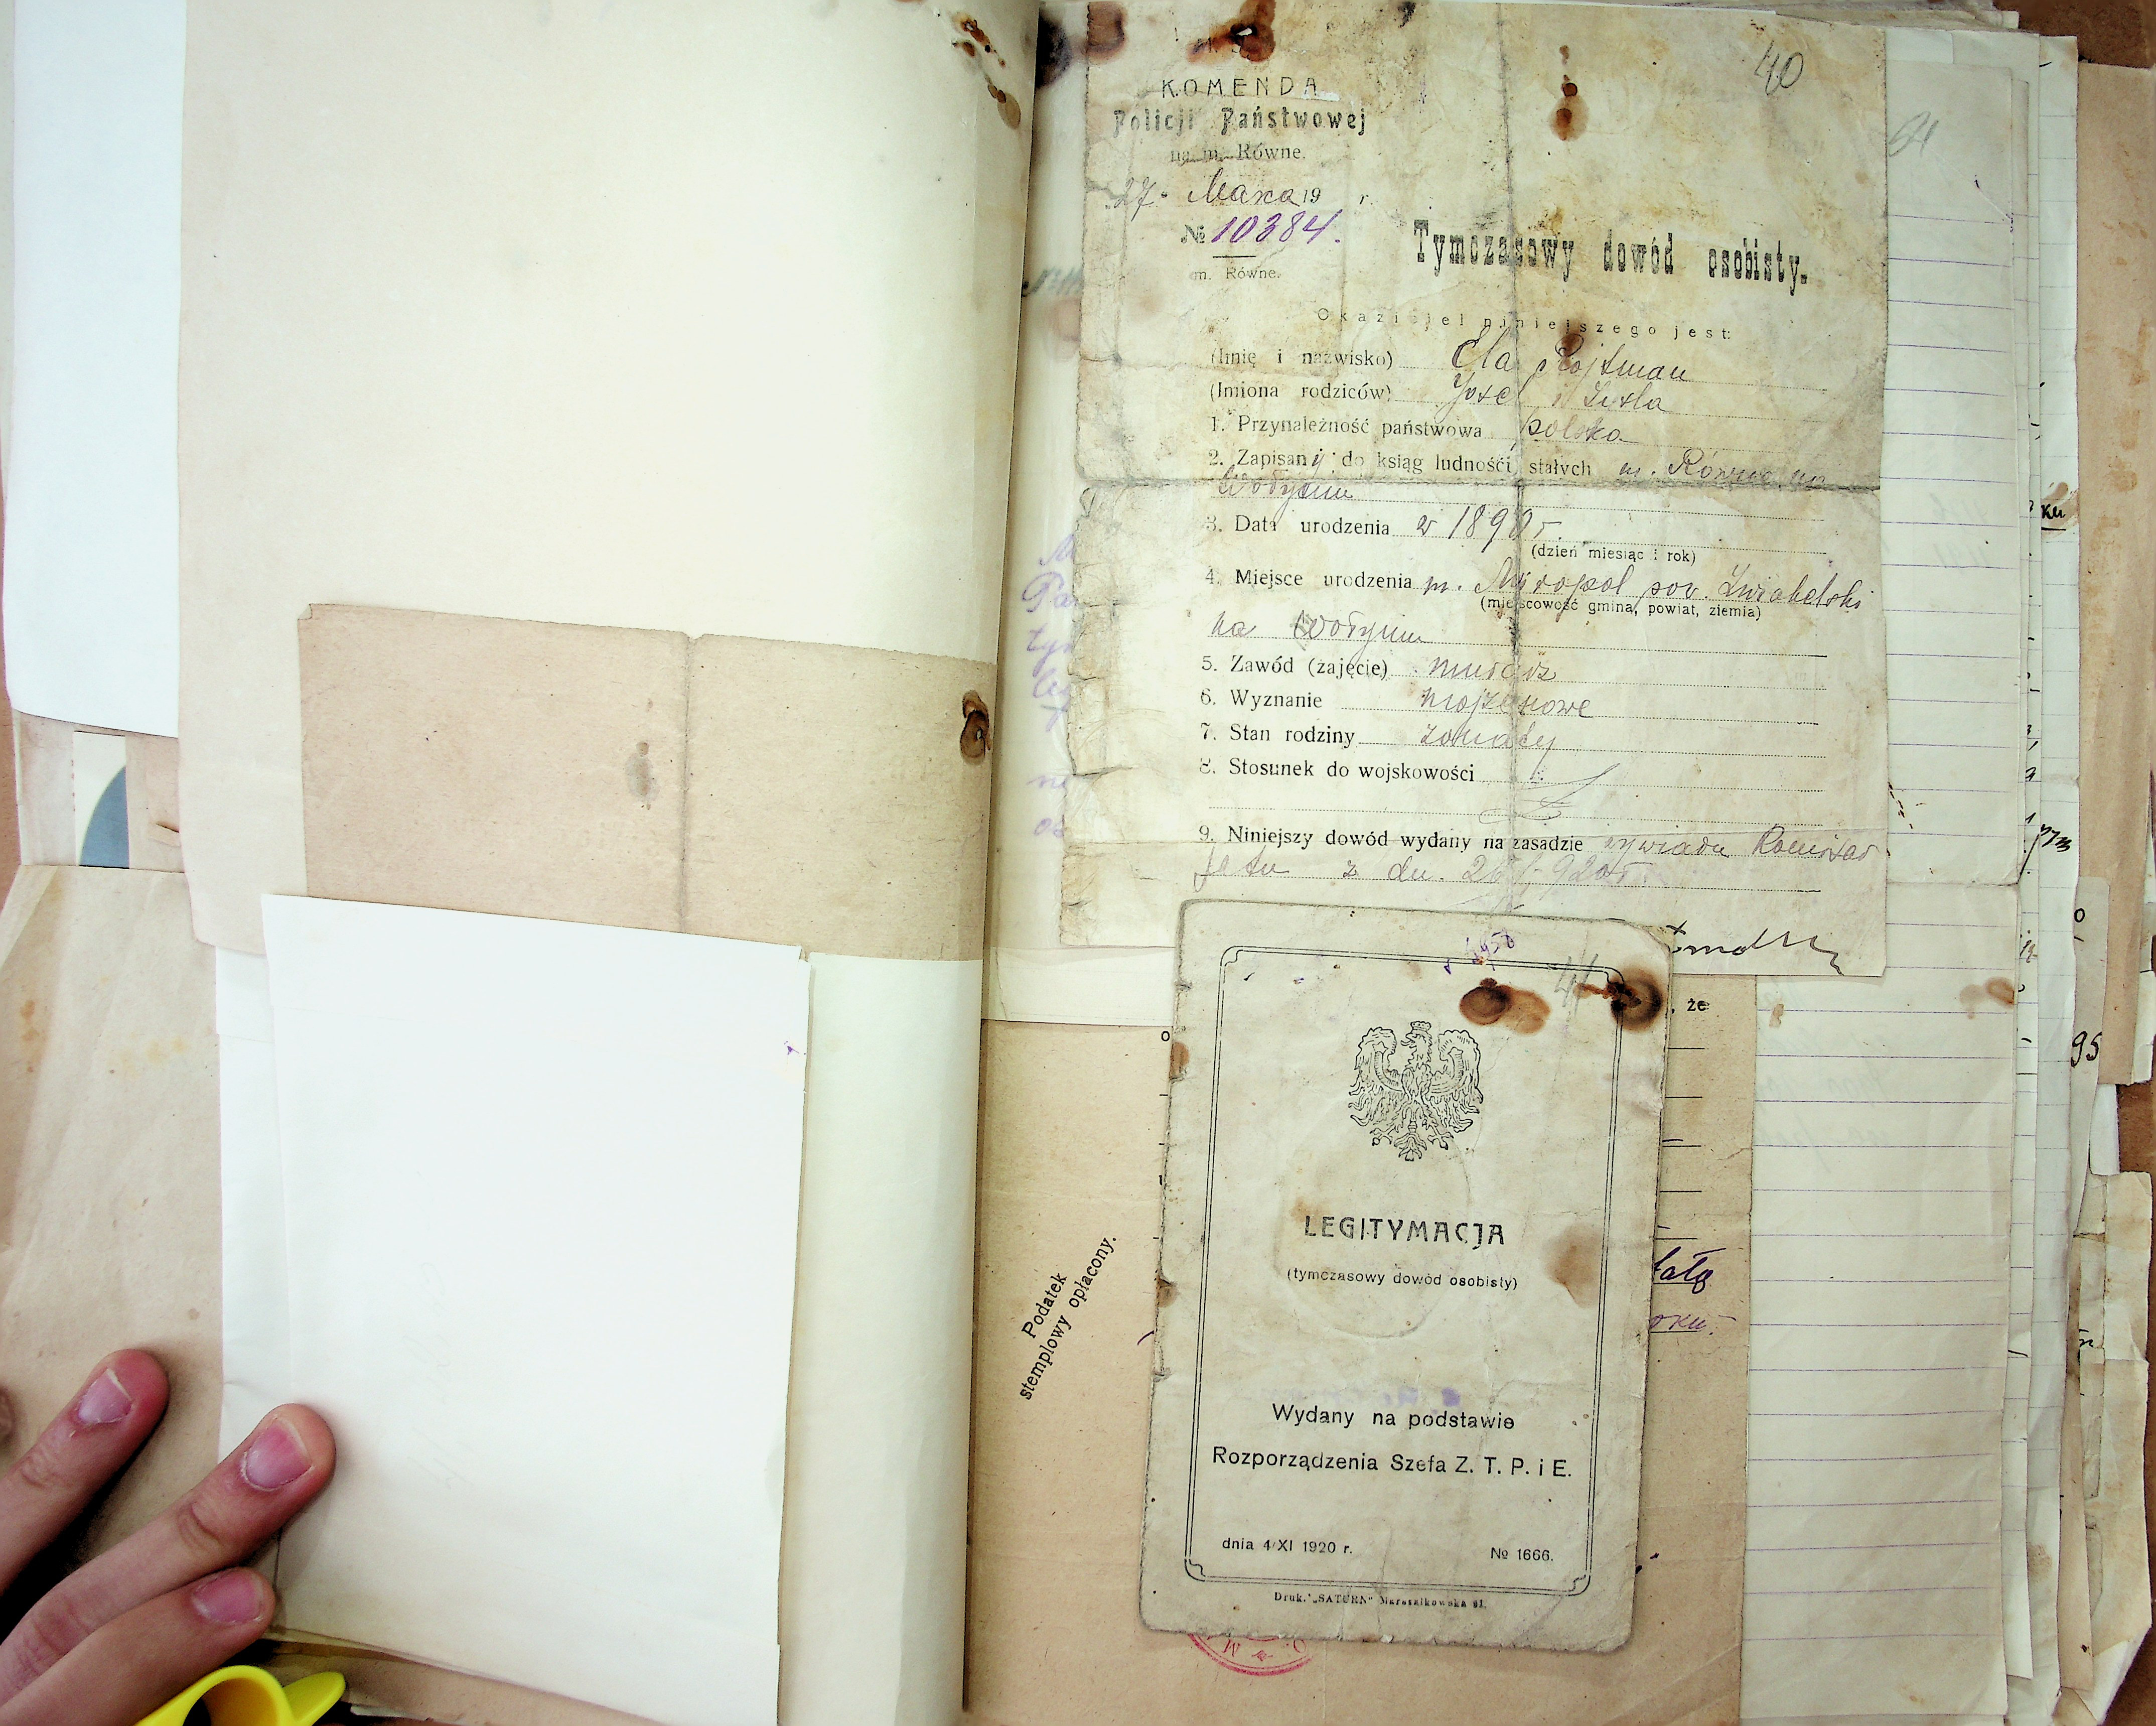 40
KOMENDA
Policji Państwowej
na m. Równe.
27 Marca 19 r.
№ 10384.
m. Równe.
Tymczasowy dowód osobisty.
Okaziciel niniejszego jest:
(Imię i nazwisko) Ela Rojtman
(Imiona rodziców) Josel i
1. Przynależność państwowa polska
2. Zapisany do ksiąg ludności stałych m. Równe na
Wołyniu
3. Data urodzenia w 1890 r.
(dzień miesiąc i rok)
4. Miejsce urodzenia m. Miropol pow. Zwiahelski
(miejscowość gmina, powiat, ziemia)
na Wołyniu
5. Zawód (zajęcie) murarz
6. Wyznanie mojżeszowe
7. Stan rodziny żonaty
8. Stosunek do wojskowości
9. Niniejszy dowód wydany na zasadzie wywiadu Komisar
jatu z dn.
41
LEGITYMACJA
(tymczasowy dowód osobisty)
Wydany na podstawie
Rozporządzenia Szefa Z. T. P. i E.
dnia 4/XI 1920 r. № 1666.
Druk. „SATURN" Marszałkowska 61.
Podatek
stemplowy opłacony.
, że
95